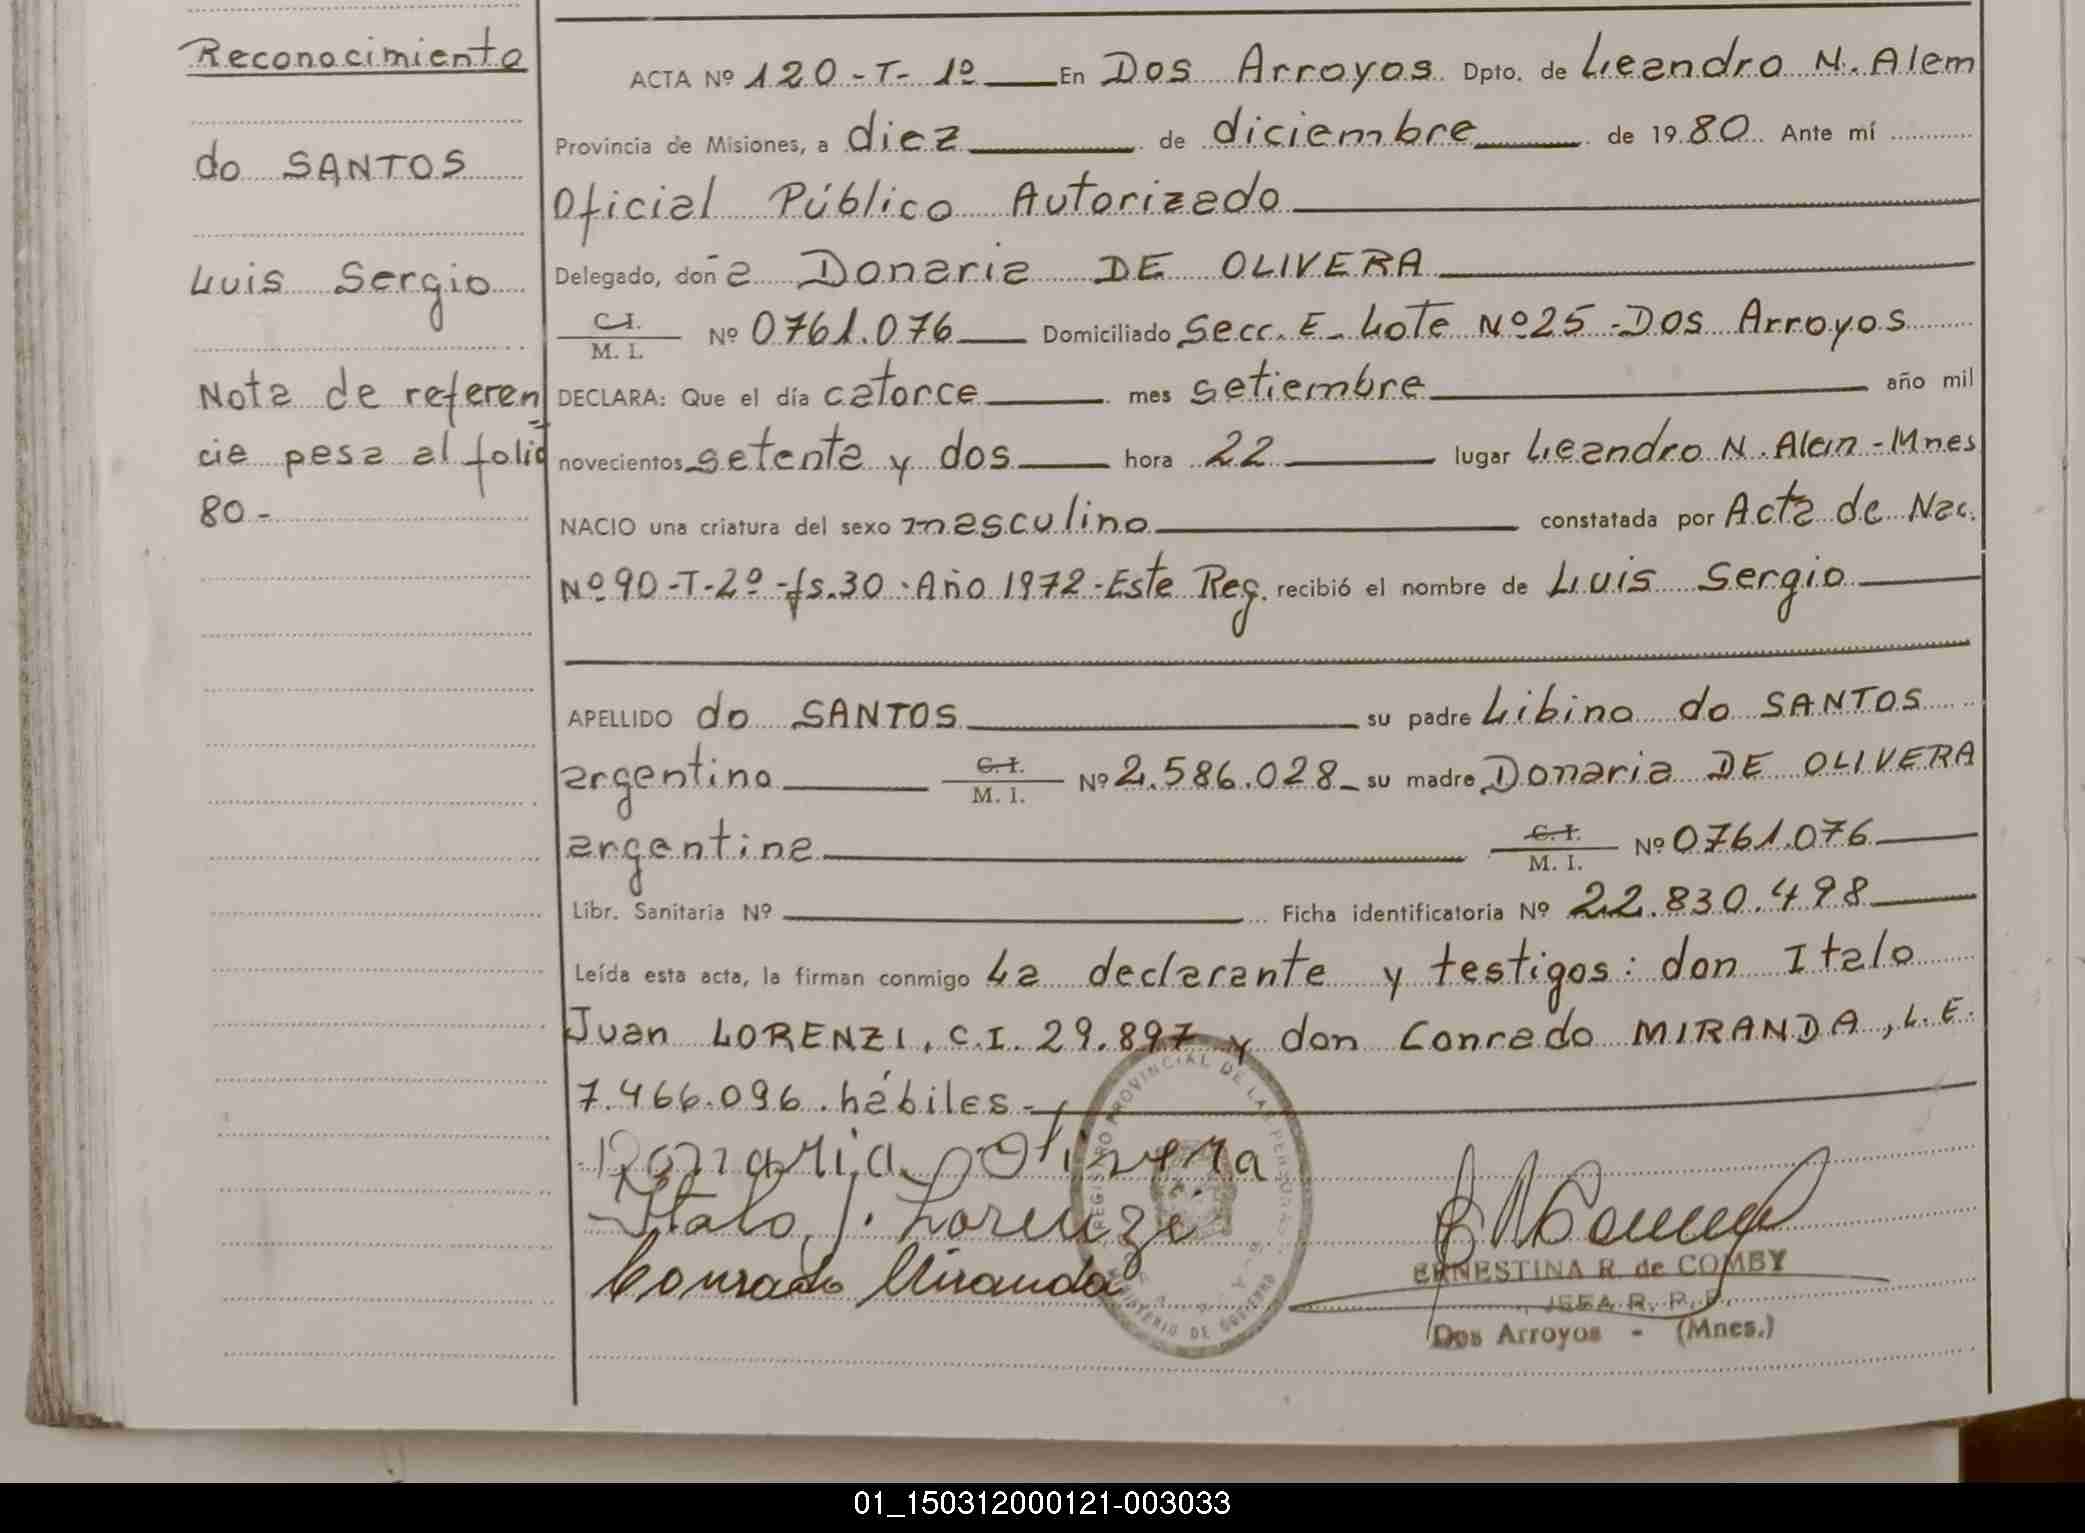 Reconocimiento
do SANTOS
Luis Sergio
Nota de referen
cia pasa al folio
80-
ACTA Nº 120-T-1º En Dos Arroyos Dpto. de Leandro N. Alem
Provincia de Misiones, a diez de diciembre de 1980 Ante mí
Oficial Público Autorizado
Delegado, doña Donaria DE OLIVERA
C.I. / M. I. Nº 0761.076 Domiciliado Secc. E- Lote Nº25-Dos Arroyos
DECLARA: Que el día catorce mes setiembre año mil
novecientos setenta y dos hora 22 lugar Leandro N. Alem-Mnes
NACIO una criatura del sexo masculino constatada por Acta de Nac.
Nº90-T-2º-fs.30-Año 1972-Este Reg. recibió el nombre de Luis Sergio
APELLIDO do SANTOS su padre Libino do SANTOS
argentino C.I. / M. I. Nº 2.586.028 su madre Donaria DE OLIVERA
argentina C.I. / M. I. Nº 0761.076
Libr. Sanitaria Nº Ficha identificatoria Nº 22.830.498
Leída esta acta, la firman conmigo La declarante y testigos: don Italo
Juan LORENZI, C.I. 29.897 y don Conrado MIRANDA, L.E.
7.466.096. hábiles-
Donaria Olivera
Italo J. Lorenzi
Conrado Miranda
REGISTRO PROVINCIAL DE LAS PERSONAS
MINISTERIO DE GOBIERNO
ERNESTINA R. de COMBY
JEFA R. P. P.
Dos Arroyos - (Mnes.)
01_150312000121-003033